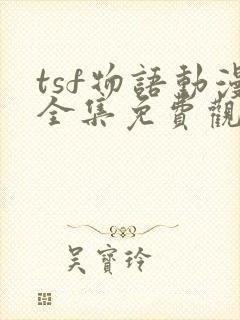 tsf物語動漫
全集免費觀
吳寶玲